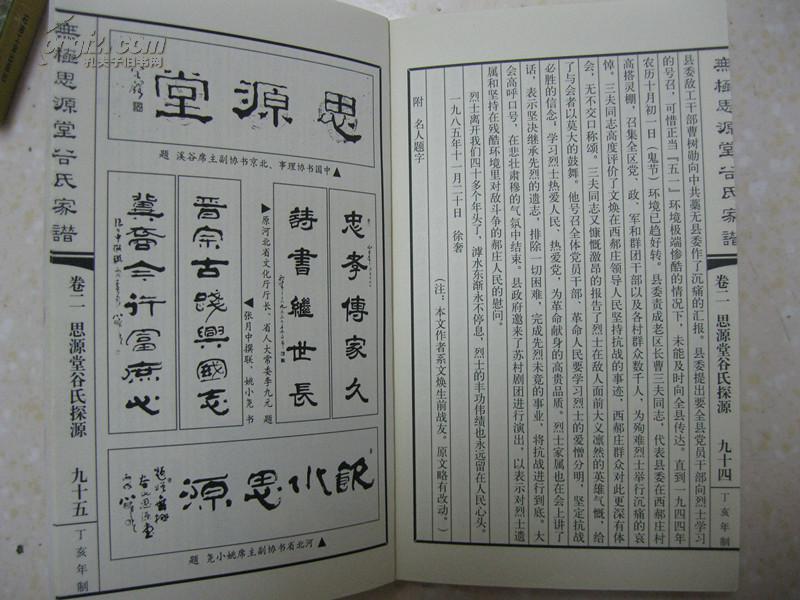 無極思源堂谷氏家譜
卷二 思源堂谷氏探源
九十四
丁亥年制
县委敌工干部曹树勋向中共藁无县委作了沉痛的汇报。县委提出要全县党员干部向烈士学习
的号召，可惜正当“五一”环境极端惨酷的情况下，未能及时向全县传达。直到一九四四年
农历十月初一日（鬼节）环境已趋好转。县委责成老区长曹三夫同志，代表县委在西郝庄村
高搭灵棚，召集全区党、政、军和群团干部以及各村群众数千人，为殉难烈士举行沉痛的哀
悼。三夫同志高度评价了文焕在西郝庄领导人民坚持抗战的事迹，西郝庄群众对此更深有体
会，无不交口称颂。三夫同志又慷慨激昂的报告了烈士在敌人面前大义凛然的英雄气慨，给
了与会者以莫大的鼓舞。他号召全体党员干部、革命人民要学习烈士的爱憎分明，坚定抗战
必胜的信念，学习烈士热爱人民、热爱党、为革命献身的高贵品质。烈士家属也在会上讲了
话，表示坚决继承先烈的遗志，排除一切困难，完成先烈未竟的事业，将抗战进行到底。大
会高呼口号，在悲壮肃穆的气氛中结束。县政府邀来了苏村剧团进行演出，以表示对烈士遗
属和坚持在残酷环境里对敌斗争的郝庄人民的慰问。
烈士离开我们四十多个年头了，滹水东渐永不停息，烈士的丰功伟绩也永远留在人民心头。
一九八五年十一月二十日 徐奢
（注：本文作者系文焕生前战友。原文略有改动。）
附 名人题字
思源堂
▲中国书协理事、北京书协副主席谷溪 题
忠孝傳家久
詩書繼世長
▼原河北省文化厅厅长、省人大常委李九元 题
晋宗古踐興國志
冀裔今行富庶心
▲张月中撰联、姚小尧书
飲水思源
▲河北省书协副主席姚小尧 题
無極思源堂谷氏家譜
卷二 思源堂谷氏探源
九十五
丁亥年制
孔夫子旧书网